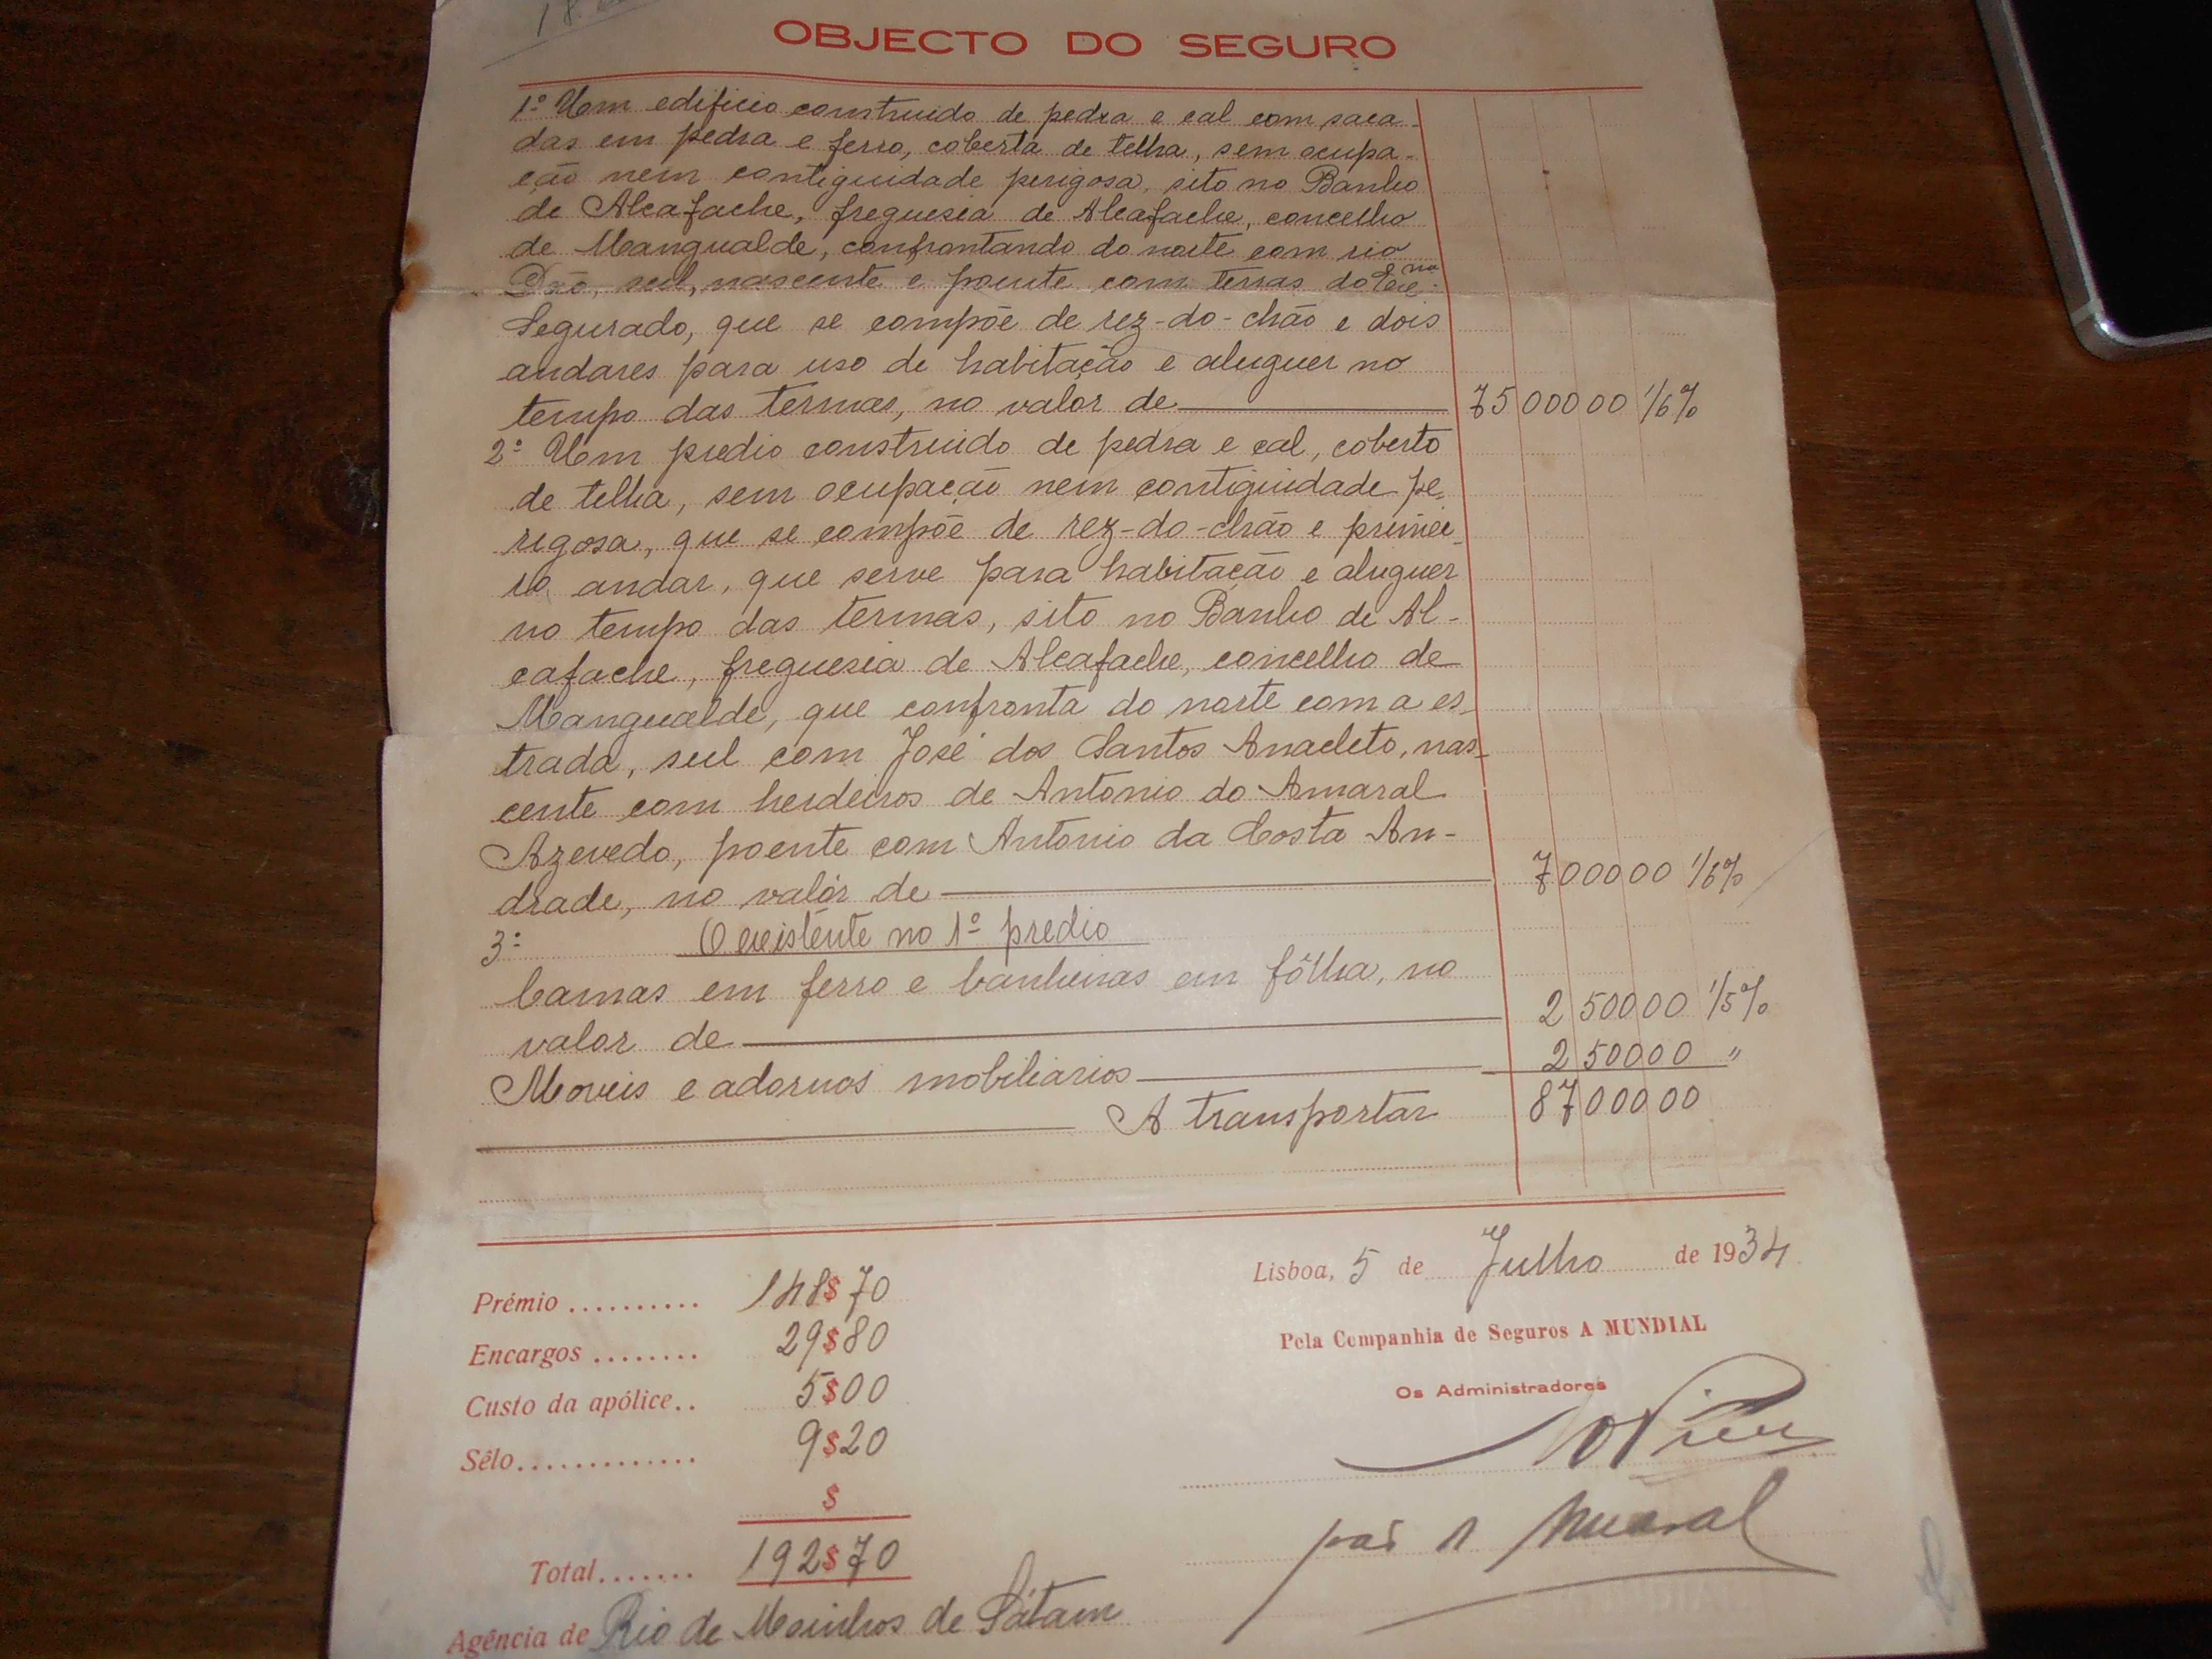 18
OBJECTO DO SEGURO
1º Um edificio construido de pedra e cal com saca-
das em pedra e ferro, coberta de telha, sem ocupa-
ção nem contiguidade perigosa, sito no Banho
de Alcafache, freguesia de Alcafache, concelho
de Mangualde, confrontando do norte com rio
Dão, sul, nascente e poente com terras do Exmº
Segurado, que se compõe de rez-do-chão e dois
andares para uso de habitação e aluguer no
tempo das termas, no valor de 75 000 00 1/6%
2º Um predio construido de pedra e cal, coberto
de telha, sem ocupação nem contiguidade pe-
rigosa, que se compõe de rez-do-chão e primei-
ro andar, que serve para habitação e aluguer
no tempo das termas, sito no Banho de Al-
cafache, freguesia de Alcafache, concelho de
Mangualde, que confronta do norte com a es-
trada, sul com José dos Santos Anacleto, nas-
cente com herdeiros de Antonio do Amaral
Azevedo, poente com Antonio da Costa An-
drade, no valor de 7 000 00 1/6%
3º O existente no 1º predio
Camas em ferro e banheiras em fôlha, no
valor de 2 500 00 1/5%
Moveis e adornos mobiliarios 2 500 00 "
A transportar 87 000 00
Lisboa, 5 de Julho de 1934
Prémio .......... 148$70
Encargos ........ 29$80
Custo da apólice.. 5$00
Sêlo............. 9$20
$
Total....... 192$70
Agência de Rio de Moinhos de Sátam
Pela Companhia de Seguros A MUNDIAL
Os Administradores